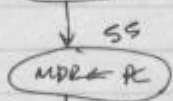 55
MDR ← PC